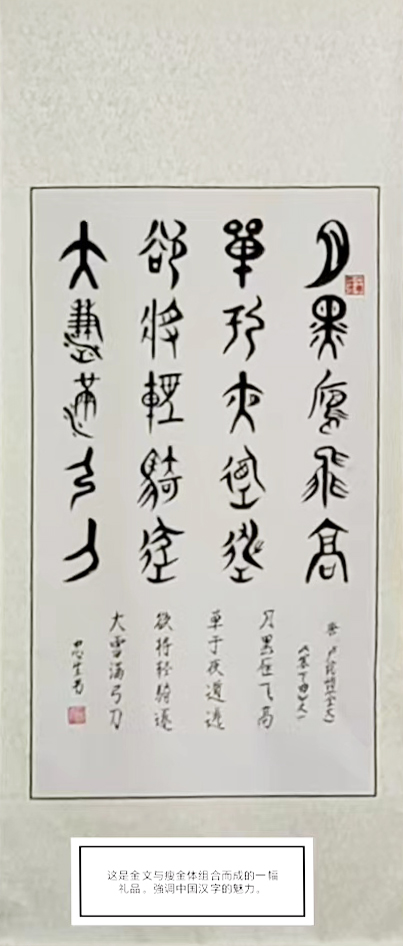 月黑雁飛高
單于夜遁逃
欲將輕騎逐
大雪滿弓刀
月黑雁飞高
单于夜遁逃
欲将轻骑逐
大雪满弓刀
这是金文与瘦金体组合而成的一幅
礼品。強调中国汉字的魅力。